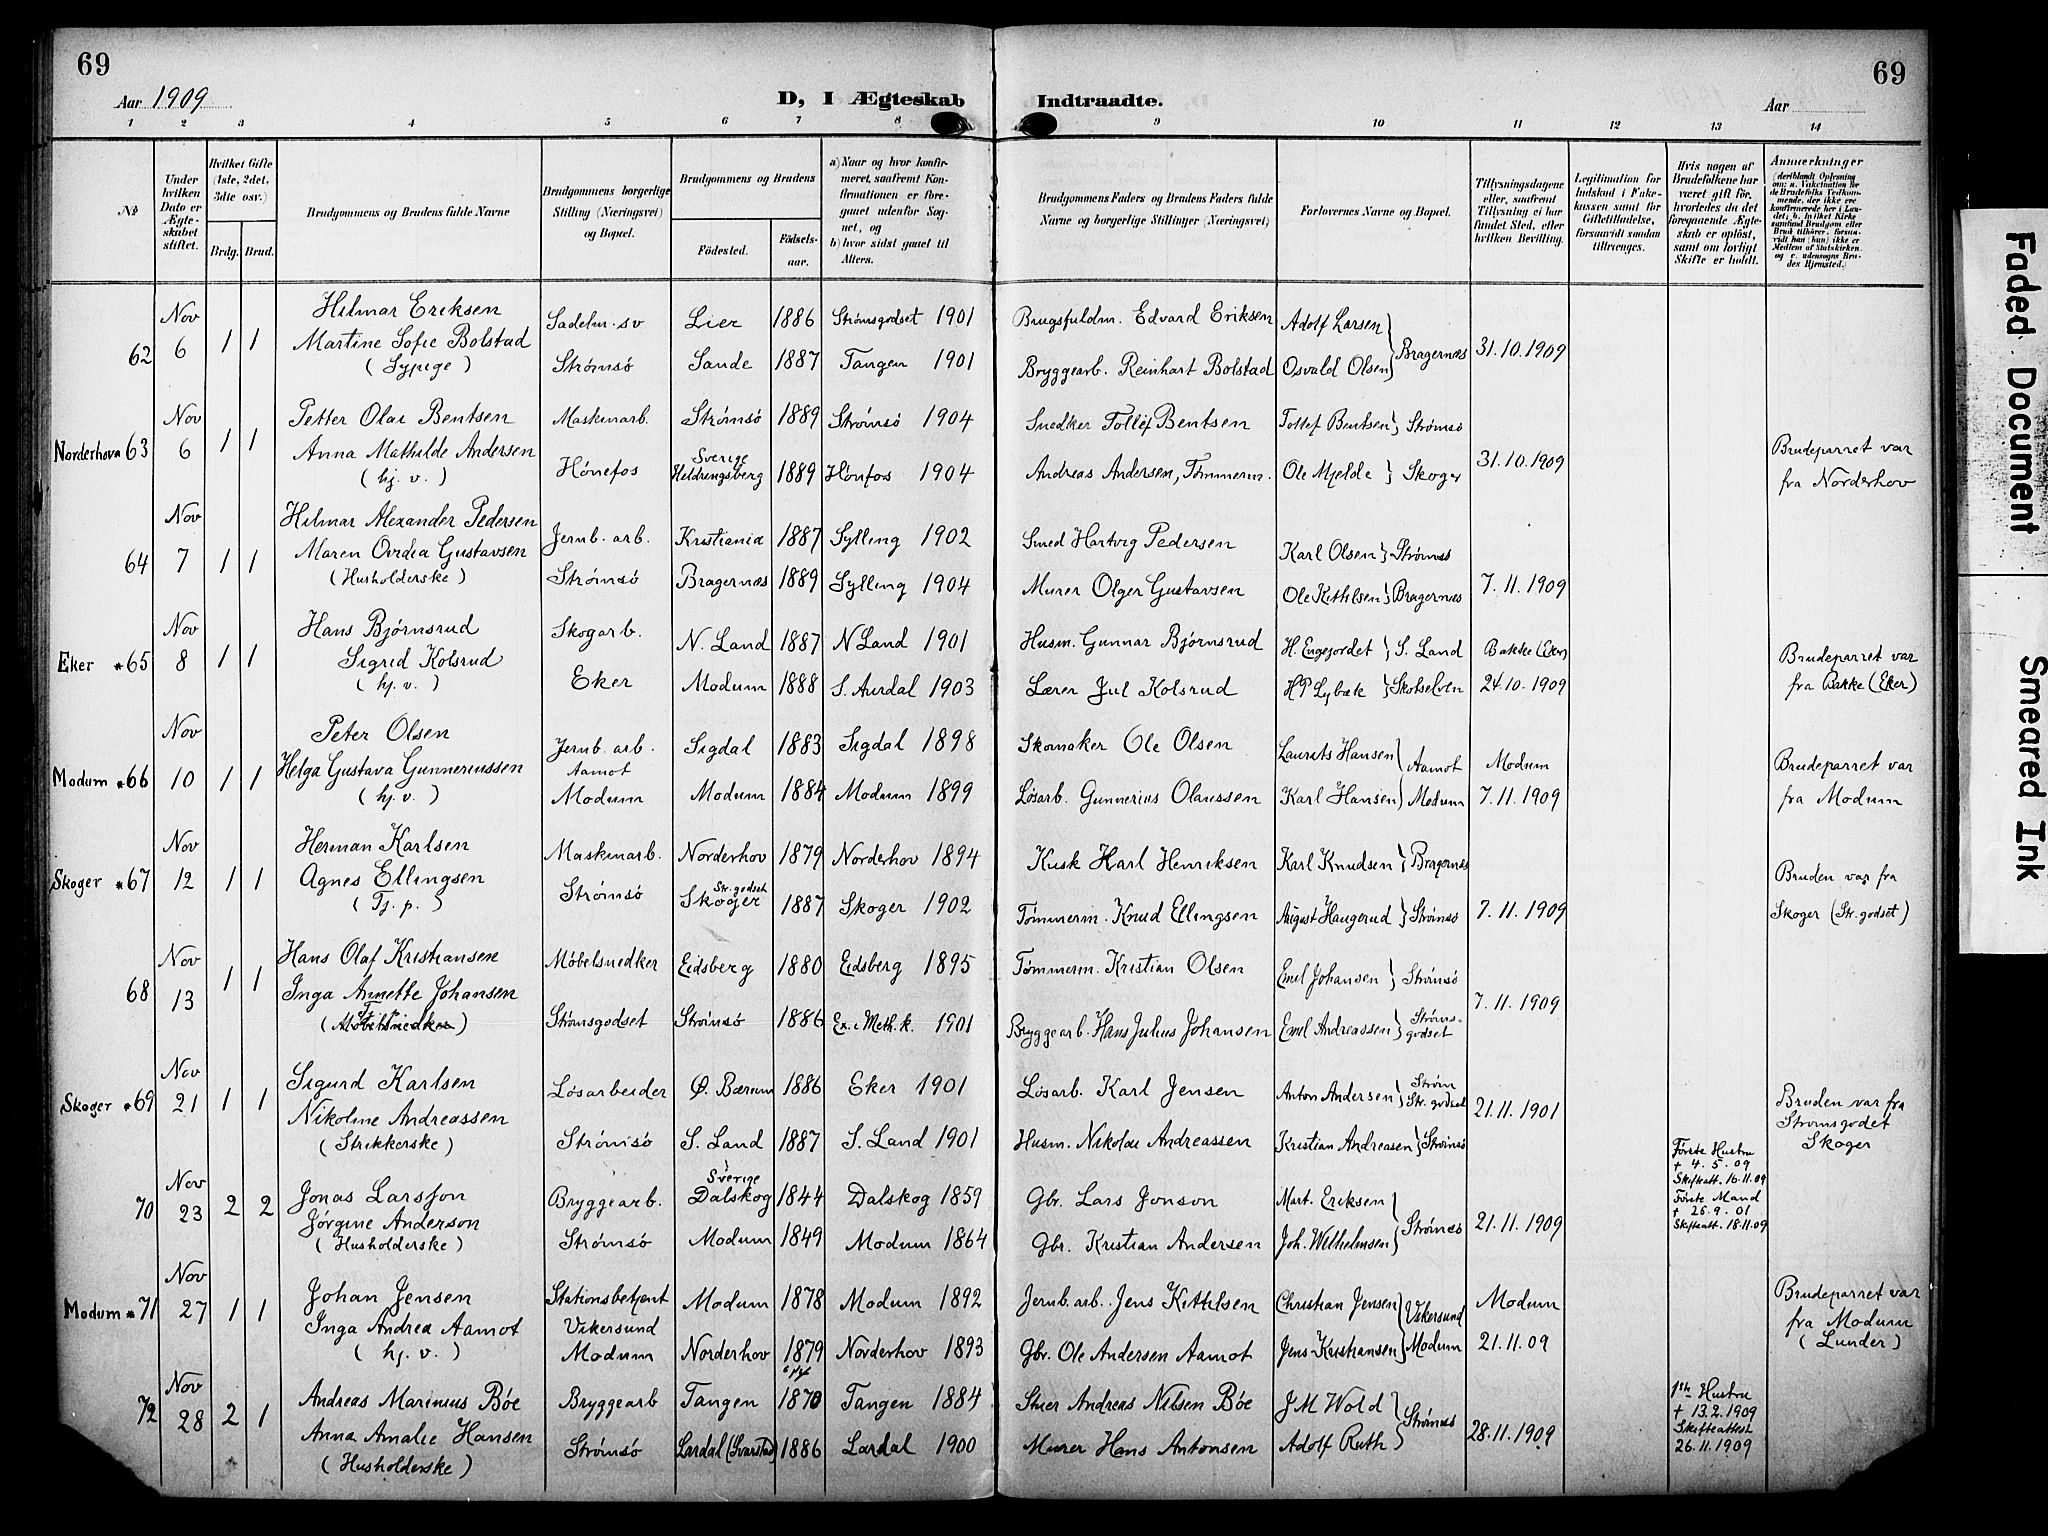 69
69
Aar 1909
D, I Ægteskab Indtraadte.
Aar
1 2 3 4 5 6 7 8 9 10 11 12 13 14
№
Under hvilken Dato er Ægteskabet stiftet.
Hvilket Gifte (1ste, 2det, 3die osv.)
Brdg. Brud.
Brudgommens og Brudens fulde Navne
Brudgommens borgerlige Stilling (Næringsvei) og Bopæl.
Brudgommens og Brudens
Födested. Födsels-aar.
a) Naar og hvor konfirmeret, saafremt Konfirmationen er foregaaet udenfor Sognet, og
b) hvor sidst gaaet til Alters.
Brudgommens Faders og Brudens Faders fulde Navne og borgerlige Stillinger (Næringsvei)
Forlovernes Navne og Bopæl.
Tillysningsdagene eller, saafremt Tillysning ei har fundet Sted, efter hvilken Bevilling.
Legitimation for Indskud i Enkekassen samt for Giftetilladelse, forsaavidt saadan tiltrænges.
Hvis nogen af Brudefolkene har været gift för, hvorledes da det foregaaende Ægteskab er oplöst, samt om lovligt Skifte er holdt.
Anmærkninger (deriblandt Oplysning om: a. Vakcination for de Brudefolks Vedkommende, der ikke ere konfirmerede her i Landet; b. hvilket Kirkesamfund Brudgom eller Brud tilhører, forsaavidt han (hun) ikke er Medlem af Statskirken, og c. udensogns Brudes Hjemsted.)
62 Nov 6 1 1 Hilmar Eriksen Sadelm. sv Lier 1886 Strømsgodset 1901 Brugsfuldm. Edvard Eriksen Adolf Larsen
Martine Sofie Bolstad (Sypige) Strømsö Sande 1887 Tangen 1901 Bryggearb. Reinhart Bolstad Osvald Olsen } Bragernæs 31.10.1909
Norderhova 63 Nov 6 1 1 Petter Olai Bentsen Maskinarb. Strømsö 1889 Strømsö 1904 Snedker Tollef Bentsen Tollef Bentsen } Strømsö
Anna Mathilde Andersen (hj. v.) Hönefos Sverige Heldrengsberg 1889 Hönfos 1904 Andreas Andersen, Tømmerm. Ole Mjelde } Skoger 31.10.1909 Brudeparret var fra Norderhov
64 Nov 7 1 1 Hilmar Alexander Pedersen Jernb. arb. Kristiania 1887 Sylling 1902 Smed Hartvig Pedersen Karl Olsen } Strømsö
Maren Ovidia Gustavsen (Husholderske) Strømsö Bragernæs 1889 Sylling 1904 Murer Olger Gustavsen Ole Kittilsen } Bragernæs 7.11.1909
Eker * 65 Nov 8 1 1 Hans Bjørnsrud Skogarb. N. Land 1887 N Land 1901 Husm. Gunnar Bjørnsrud H. Engejordet } S. Land Bakke (Eker)
Sigrid Kolsrud (hj. v.) Eker Modum 1888 S. Aurdal 1903 Lærer Jul Kolsrud HP Lybæk } Skotselven 24.10.1909 Brudeparret var fra Bakke (Eker)
Modum * 66 Nov 10 1 1 Peter Olsen Jernb. arb. Aamot Sigdal 1883 Sigdal 1898 Skomaker Ole Olsen Laurits Hansen } Aamot Modum
Helga Gustava Gunneriussen (hj. v.) Modum Modum 1884 Modum 1899 Løsarb. Gunnerius Olaussen Karl Hansen } Modum 7.11.1909 Brudeparret var fra Modum
Skoger * 67 Nov 12 1 1 Herman Karlsen Maskinarb. Norderhov 1879 Norderhov 1894 Kusk Karl Henriksen Karl Knudsen } Bragernæs
Agnes Ellingsen (Tj. p.) Strømsö Str. godset Skoger 1887 Skoger 1902 Tømmerm. Knud Ellingsen August Haugerud } Strømsö 7.11.1909 Bruden var fra Skoger (Str. godset)
68 Nov 13 1 1 Hans Olaf Kristiansen Møbelsnedker Eidsberg 1880 Eidsberg 1895 Tømmerm. Kristian Olsen Emil Johansen } Strømsö
Inga Annette Johansen (Møbelsnedker) Strømsgodset Strømsö 1886 Ex. i Meth. k. 1901 Bryggearb. Hans Julius Johansen Emil Andreassen } Strømsgodset 7.11.1909
Skoger * 69 Nov 21 1 1 Sigurd Karlsen Løsarbeider Ø. Bærum 1886 Eker 1901 Løsarb. Karl Jensen Anton Andersen } Strøm Str. godset
Nikoline Andreassen (Strikkerske) Strømsö S. Land 1887 S. Land 1901 Husm. Nikolai Andreassen Kristian Andreasen } Strømsö 21.11.1901 Bruden var fra Strømsgodet Skoger
70 Nov 23 2 2 Jonas Larsson Bryggearb. Sverige Dalskog 1844 Dalskog 1859 Gbr. Lars Jonson Mart. Eriksen
Jørgine Anderson (Husholderske) Strømsö Modum 1849 Modum 1864 Gbr. Kristian Andersen Joh. Wilhelmsen } Strømsö 21.11.1909
Første Hustru + 4.5.09 Skifteatt. 16.11.09 Første Mand + 26.9.01 Skifteatt. 18.11.09
Modum * 71 Nov 27 1 1 Johan Jensen Stationsbetjent Modum 1878 Modum 1892 Jernb. arb. Jens Kittilsen Christian Jensen } Vikersund Modum
Inga Andrea Aamot (hj. v.) Vikersund Modum Norderhov 1879 Norderhov 1893 Gbr. Ole Andersen Aamot Jens Kristiansen } Modum 21.11.09 Brudeparret var fra Modum (Lunder)
72 Nov 28 2 1 Andreas Marinius Bøe Bryggearb Tangen 1870 Tangen 1884 Stuer Andreas Nilsen Bøe J M Wold
Anna Amalie Hansen (Husholderske) Strømsö Lardal (Svarstad) 1886 Lardal 1900 Murer Hans Antonsen Adolf Ruth } Strømsö 28.11.1909
1ste Hustru + 13.2.1909 Skifteattest 26.11.1909
Faded Document
Smeared Ink